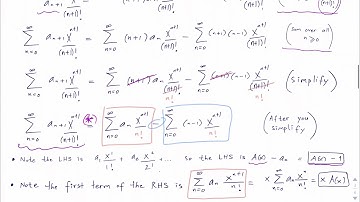 a_{n+1} x^{n+1}/(n+1)!
∞ Σ n=0 a_{n+1} x^{n+1}/(n+1)! = ∞ Σ n=0 (n+1) a_n x^{n+1}/(n+1)! − ∞ Σ n=0 (n+1)(n-1) x^{n+1}/(n+1)! (Sum over all n≥0)
∞ Σ n=0 a_{n+1} x^{n+1}/(n+1)! = ∞ Σ n=0 (n+1) a_n x^{n+1}/(n+1)! n! − ∞ Σ n=0 (n+1)(n-1) x^{n+1}/(n+1)! n! (Simplify)
∞ Σ n=0 a_{n+1} x^{n+1}/(n+1)! * = ∞ Σ n=0 a_n x^{n+1}/n! − ∞ Σ n=0 (n-1) x^{n+1}/n! (After you simplify)
• Note the LHS is a_1 x^1/1! + a_2 x^2/2! + ... so the LHS is A(x) - a_0 = A(x) - 1
• Note the first term of the RHS is ∞ Σ n=0 a_n x^{n+1}/n! = x ∞ Σ n=0 a_n x^n/n! = x A(x)